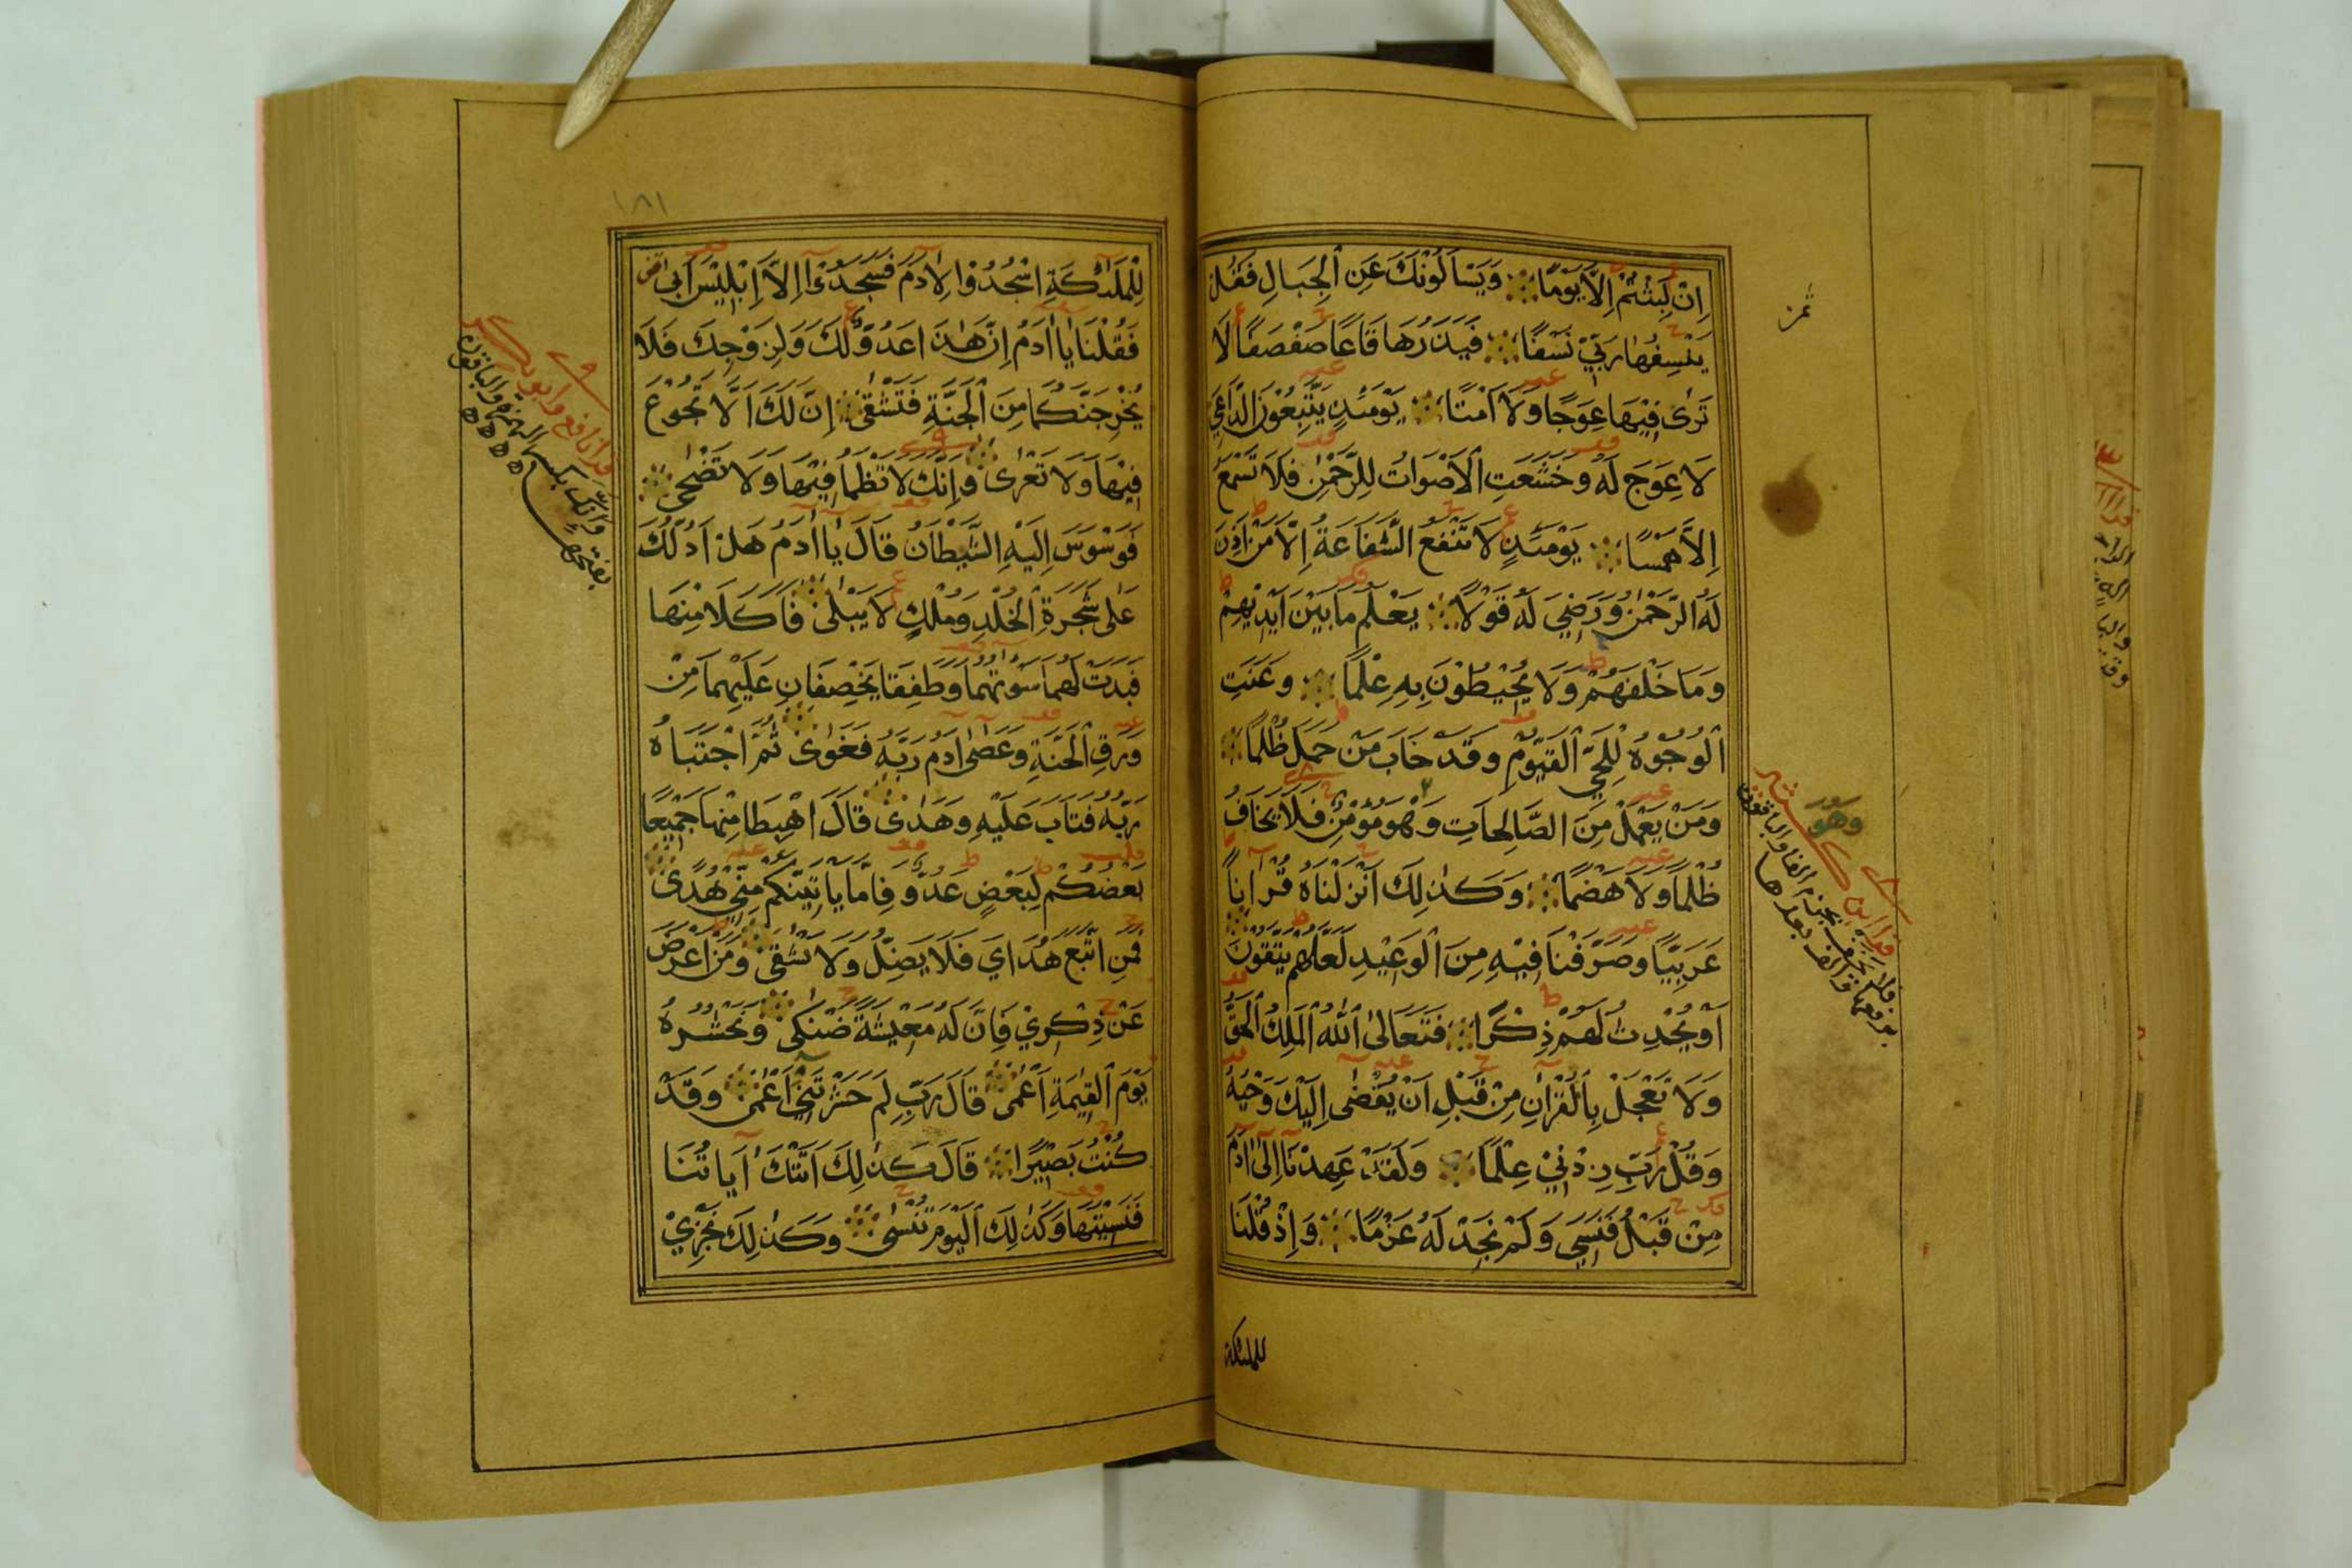 اِنْ لَبِثْتُمْ اِلَّا يَوْمًا وَيَسْاَلُوْنَكَ عَنِ الْجِبَالِ فَقُلْ
يَنْسِفُهَا رَبِّيْ نَسْفًا فَيَذَرُهَا قَاعًا صَفْصَفًا لَا
تَرٰى فِيْهَا عِوَجًا وَلَا اَمْتًا يَوْمَئِذٍ يَتَّبِعُوْنَ الدَّاعِيَ
لَا عِوَجَ لَهُ وَخَشَعَتِ الْاَصْوَاتُ لِلرَّحْمٰنِ فَلَا تَسْمَعُ
اِلَّا هَمْسًا يَوْمَئِذٍ لَا تَنْفَعُ الشَّفَاعَةُ اِلَّا مَنْ اَذِنَ
لَهُ الرَّحْمٰنُ وَرَضِيَ لَهُ قَوْلًا يَعْلَمُ مَا بَيْنَ اَيْدِيْهِمْ
وَمَا خَلْفَهُمْ وَلَا يُحِيْطُوْنَ بِهِ عِلْمًا وَعَنَتِ
الْوُجُوْهُ لِلْحَيِّ الْقَيُّوْمِ وَقَدْ خَابَ مَنْ حَمَلَ ظُلْمًا
وَمَنْ يَعْمَلْ مِنَ الصَّالِحَاتِ وَهْوَ مُؤْمِنٌ فَلَا يَخَافُ
ظُلْمًا وَلَا هَضْمًا وَكَذٰلِكَ اَنْزَلْنَاهُ قُرْآنًا
عَرَبِيًّا وَصَرَّفْنَا فِيْهِ مِنَ الْوَعِيْدِ لَعَلَّهُمْ يَتَّقُوْنَ
اَوْ يُحْدِثُ لَهُمْ ذِكْرًا فَتَعَالَى اللّٰهُ الْمَلِكُ الْحَقُّ
وَلَا تَعْجَلْ بِالْقُرْاٰنِ مِنْ قَبْلِ اَنْ يُقْضٰى اِلَيْكَ وَحْيُهُ
وَقُلْ رَبِّ زِدْنِيْ عِلْمًا وَلَقَدْ عَهِدْنَا اِلٰى اٰدَمَ
مِنْ قَبْلُ فَنَسِيَ وَلَمْ نَجِدْ لَهُ عَزْمًا وَاِذْ قُلْنَا
للملئكة
ثمن
وَهُوَ
١٨١
لِلْمَلٰئِكَةِ اسْجُدُوْا لِاٰدَمَ فَسَجَدُوْا اِلَّا اِبْلِيْسَ اَبٰى
فَقُلْنَا يَا اٰدَمُ اِنَّ هٰذَا عَدُوٌّ لَكَ وَلِزَوْجِكَ فَلَا
يُخْرِجَنَّكُمَا مِنَ الْجَنَّةِ فَتَشْقٰى اِنَّ لَكَ اَلَّا تَجُوْعَ
فِيْهَا وَلَا تَعْرٰى وَاِنَّكَ لَا تَظْمَأُ فِيْهَا وَلَا تَضْحٰى
فَوَسْوَسَ اِلَيْهِ الشَّيْطَانُ قَالَ يَا اٰدَمُ هَلْ اَدُلُّكَ
عَلٰى شَجَرَةِ الْخُلْدِ وَمُلْكٍ لَا يَبْلٰى فَاَكَلَا مِنْهَا
فَبَدَتْ لَهُمَا سَوْاٰتُهُمَا وَطَفِقَا يَخْصِفَانِ عَلَيْهِمَا مِنْ
وَرَقِ الْجَنَّةِ وَعَصٰى اٰدَمُ رَبَّهُ فَغَوٰى ثُمَّ اجْتَبَاهُ
رَبُّهُ فَتَابَ عَلَيْهِ وَهَدٰى قَالَ اهْبِطَا مِنْهَا جَمِيْعًا
بَعْضُكُمْ لِبَعْضٍ عَدُوٌّ فَاِمَّا يَاْتِيَنَّكُمْ مِنِّيْ هُدًى
فَمَنِ اتَّبَعَ هُدَايَ فَلَا يَضِلُّ وَلَا يَشْقٰى وَمَنْ اَعْرَضَ
عَنْ ذِكْرِيْ فَاِنَّ لَهُ مَعِيْشَةً ضَنْكًى وَنَحْشُرُهُ
يَوْمَ الْقِيٰمَةِ اَعْمٰى قَالَ رَبِّ لِمَ حَشَرْتَنِيْ اَعْمٰى وَقَدْ
كُنْتُ بَصِيْرًا قَالَ كَذٰلِكَ اَتَتْكَ اٰيَاتُنَا
فَنَسِيْتَهَا وَكَذٰلِكَ الْيَوْمَ تُنْسٰى وَكَذٰلِكَ نَجْزِيْ